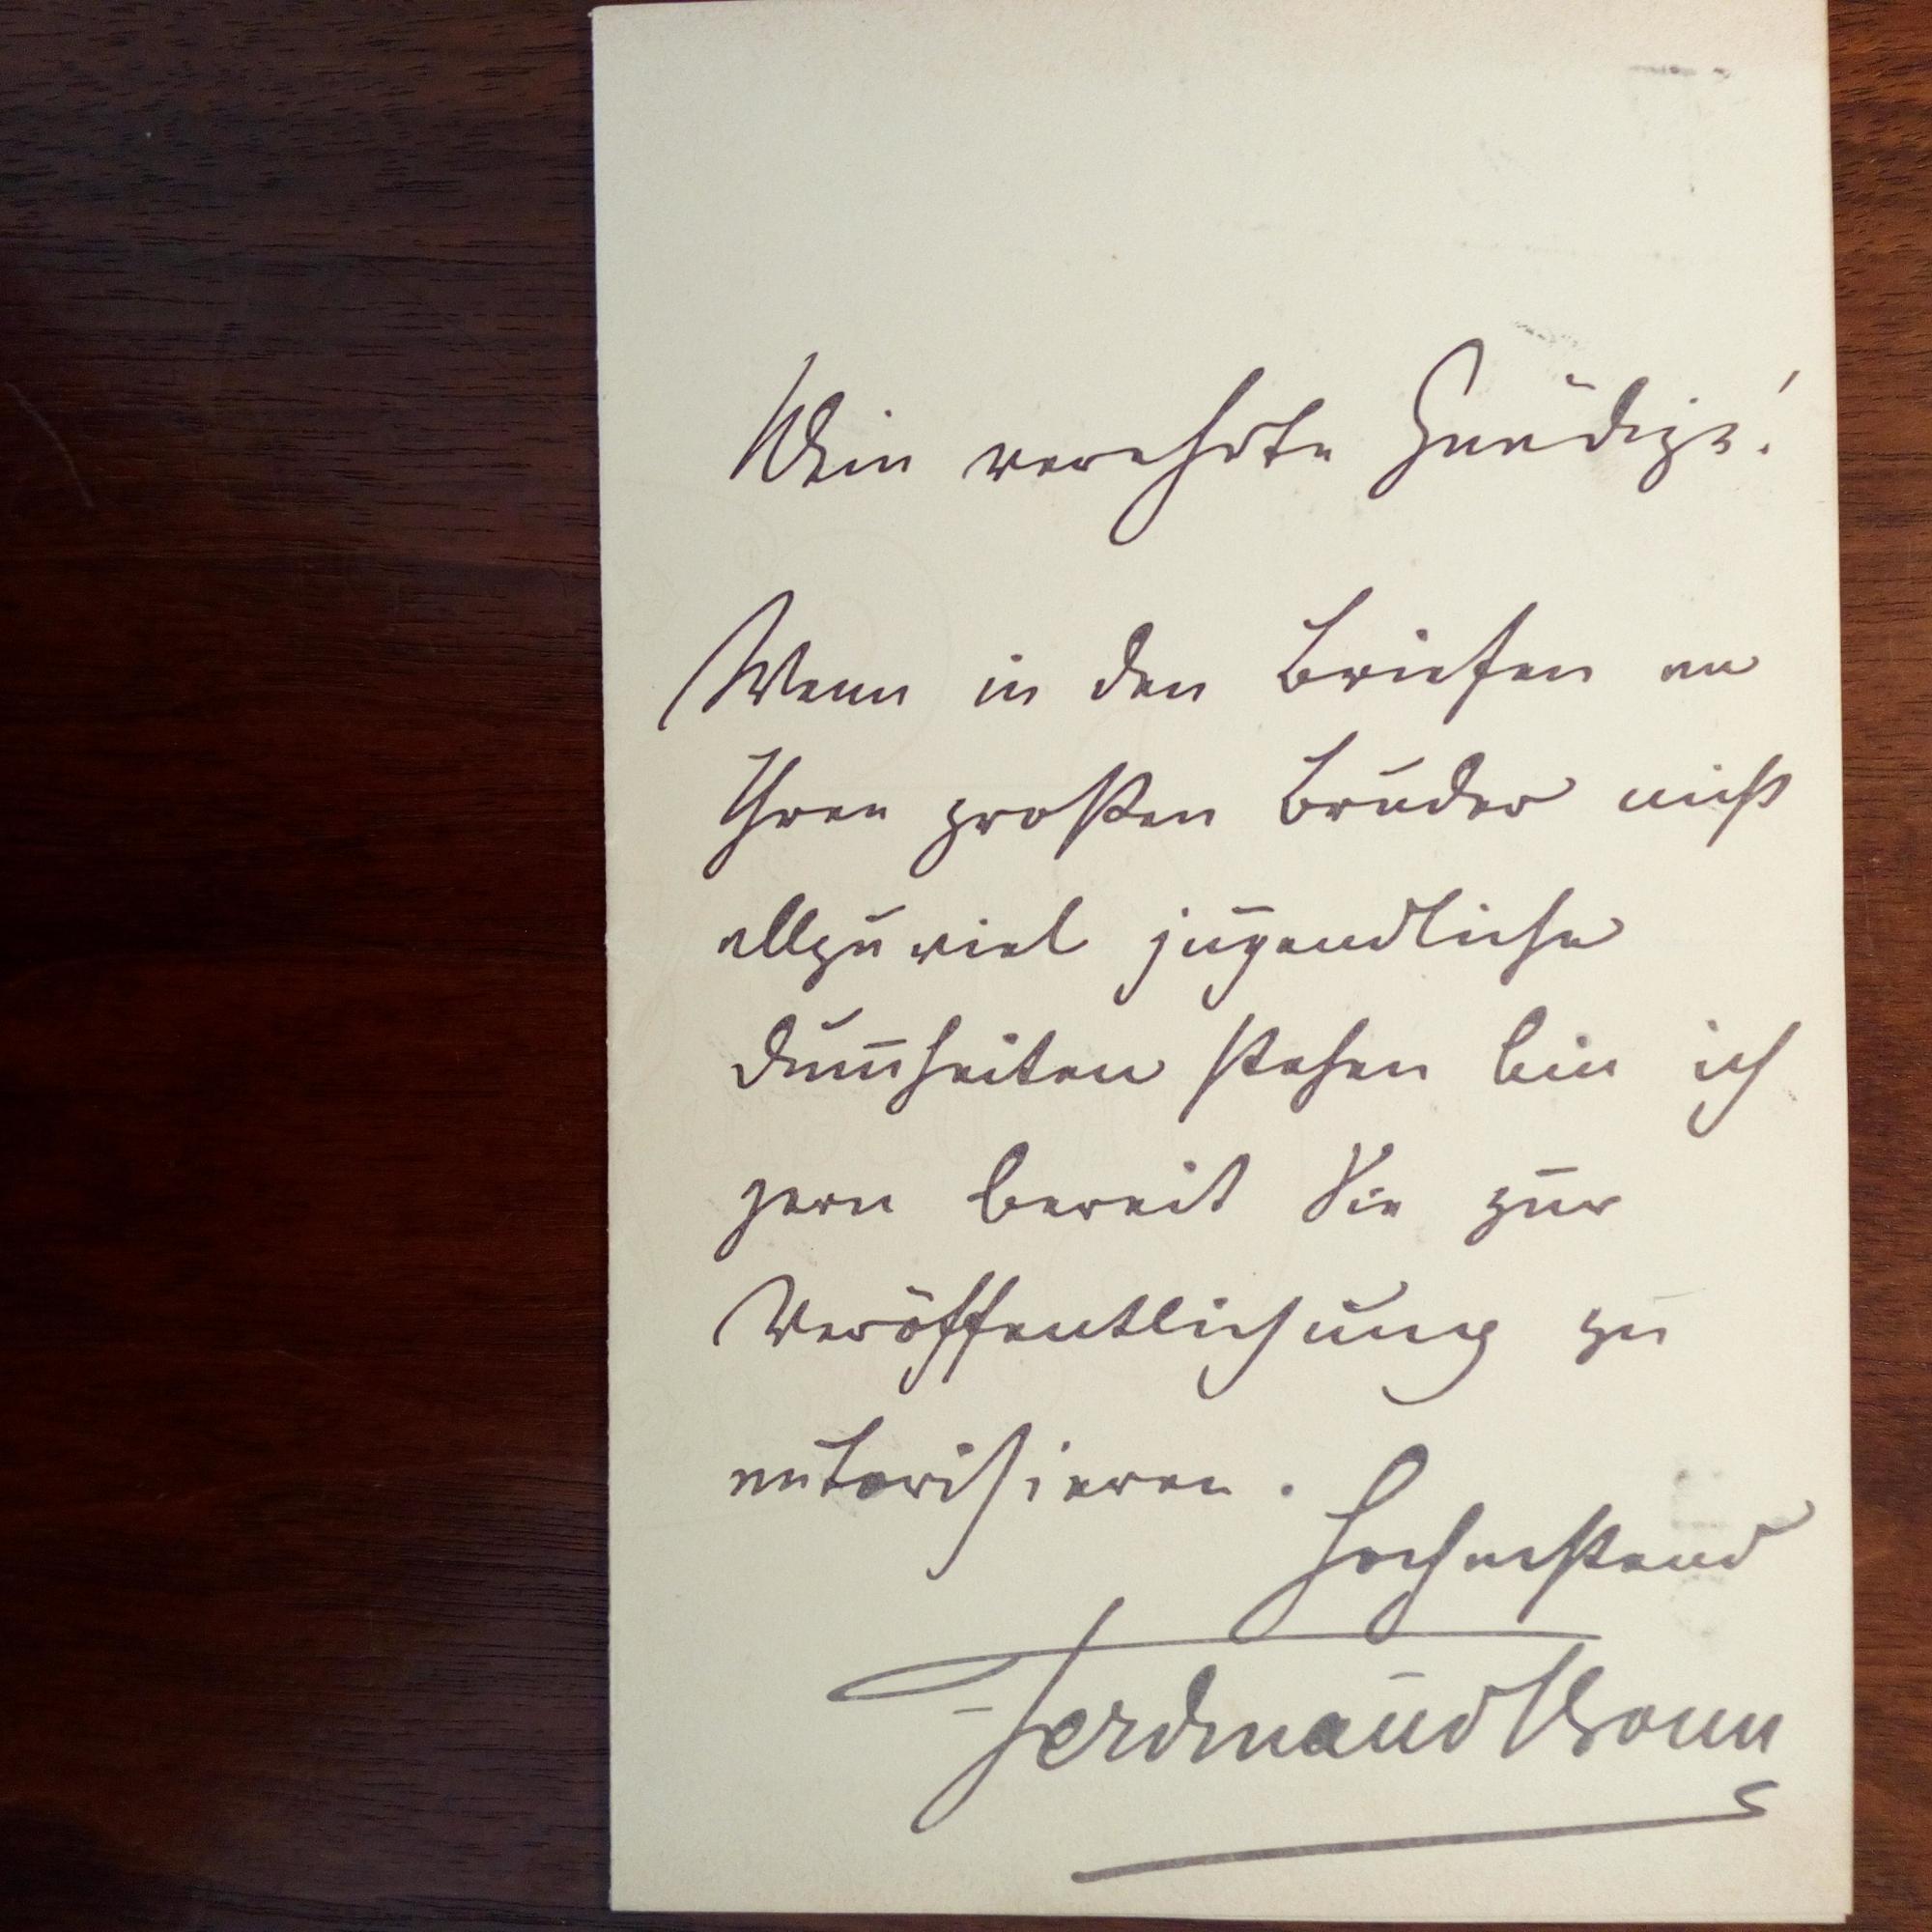 Mein verehrte Gnädige!
Wenn in den Briefen an
Ihren großen Bruder nicht
allzuviel jugendliche
Dum̅heiten stehen bin ich
gern bereit Sie zur
Veröffentlichung zu
autorisieren.
Hochachtend
Ferdinand Bonn